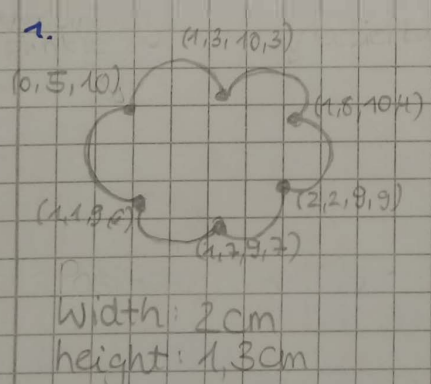 1.
(1,3,10,3)
(0,5,10)
(1,8,10,4)
(1,1,9,6)
(2,2,9,9)
(1,7,9,7)
width: 2cm
height: 1,3cm